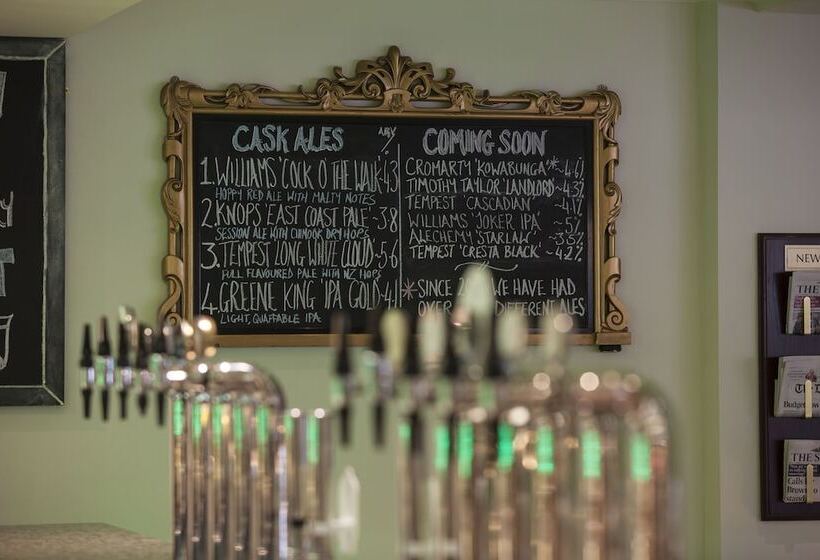 CASK ALES
ABV %
1. WILLIAMS 'COCK O' THE WALK' 4.3
HOPPY RED ALE WITH MALTY NOTES
2. KNOPS EAST COAST PALE ~ 3.8
SESSION ALE WITH CHINOOK DRY HOPS
3. TEMPEST LONG WHITE CLOUD ~ 5.6
FULL FLAVOURED PALE WITH NZ HOPS
4. GREENE KING 'IPA GOLD' 4.1
LIGHT, QUAFFABLE IPA
COMING SOON
CROMARTY 'KOWABUNGA'
TIMOTHY TAYLOR 'LANDLORD'
TEMPEST 'CASCADIAN'
WILLIAMS 'JOKER IPA'
ALECHEMY 'STARLAW'
TEMPEST 'CRESTA BLACK' ~ 4.2%
* SINCE WE HAVE HAD
OVER DIFFERENT ALES
NEW
THE
Budget
THE S
Calls
Brown
stand